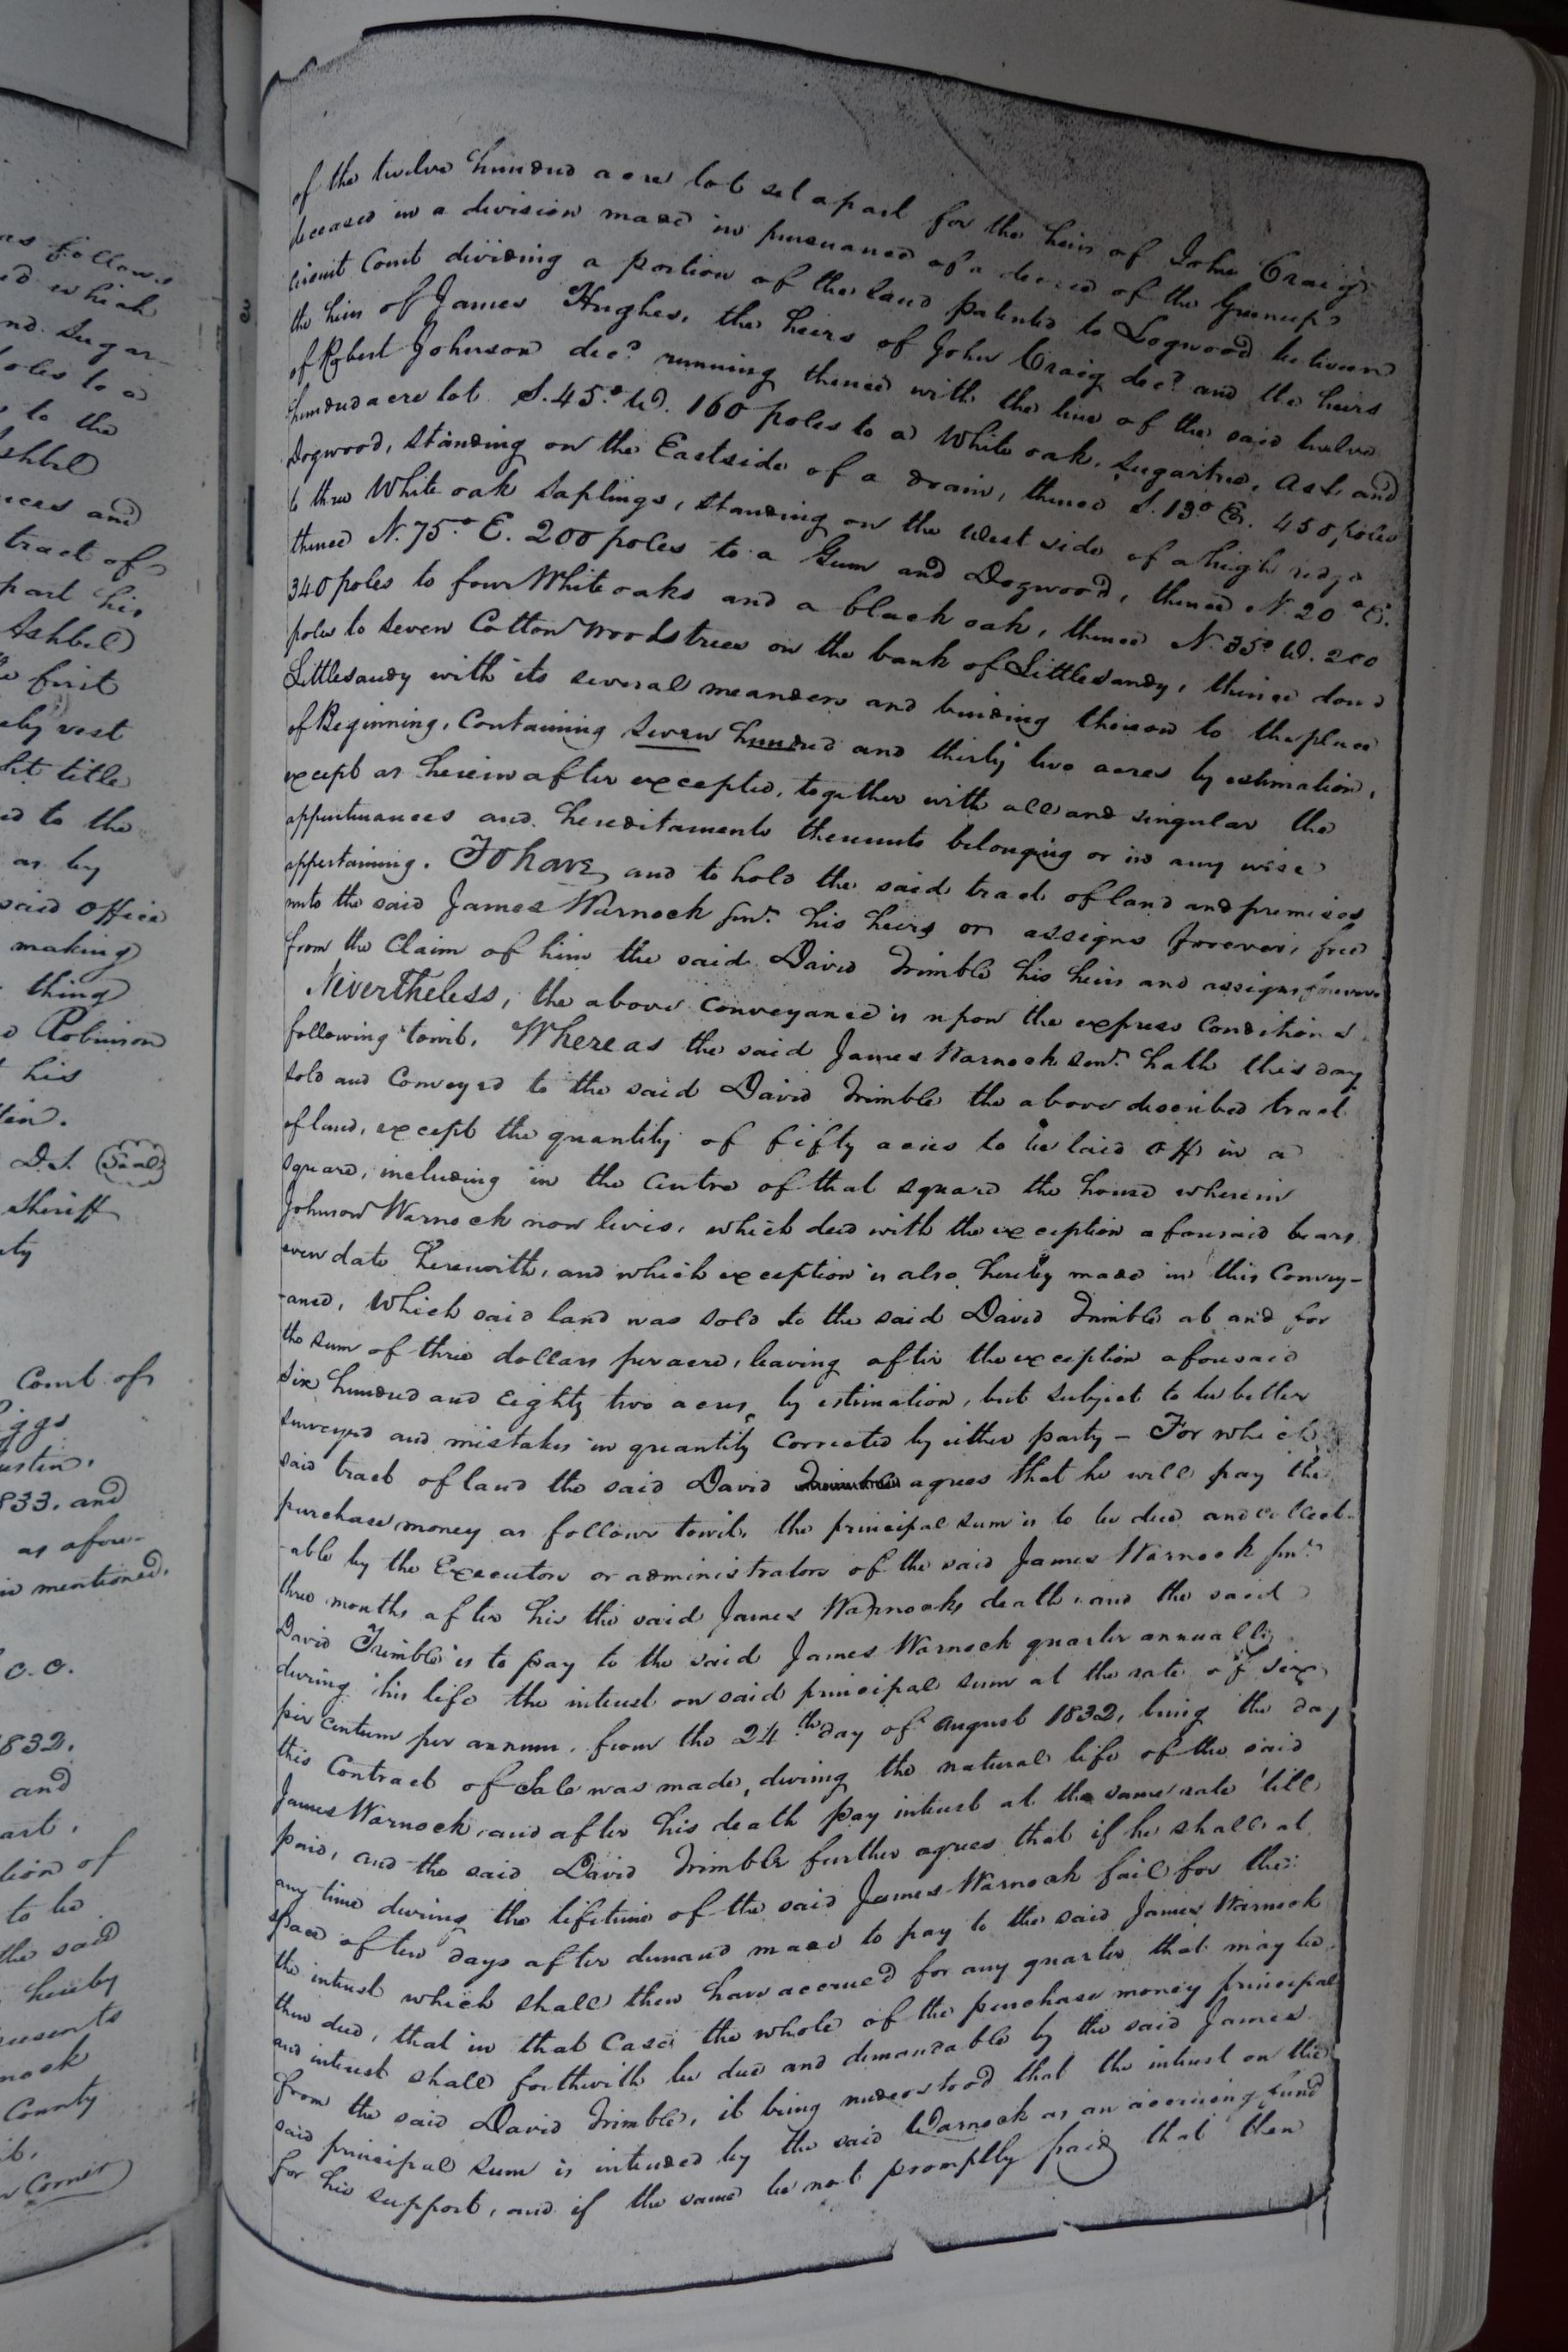 as follows
and which
and Sugar-
poles to a
to the
Ashbel
and
tract of
part his
Ashbel
first
vest
title
to the
as by
said office
making
thing
Robinson
his
D.S. (Seal)
Sheriff
Court of
1833. and
as afore-
in mentioned.
C.O.
1832.
and
part.
tion of
to be
the said
hereby
presents
County
Corner
of the twelve hundred acre lot set apart for the heirs of John Craig
deceased in a division made in pursuance of a decree of the Greenup
circuit Court dividing a portion of the land patented to Logwood between
the heirs of James Hughes, the heirs of John Craig decd. and the heirs
of Robert Johnson decd. running thence with the line of the said twelve
hundred acre lot S. 45° W. 160 poles to a White oak, Sugartree, Ash and
Dogwood, standing on the East side of a drain, thence S. 13° E. 450 poles
to three White oak Saplings, standing on the West side of a high ridge
thence N. 75° E. 200 poles to a Gum and Dogwood, thence N. 20° E.
340 poles to four White oaks and a black oak, thence N. 35° W. 200
poles to Seven Cotton Woods trees on the bank of Little Sandy, thence down
Little Sandy with its several meanders and binding thereon to the place
of Beginning, Containing Seven hundred and thirty two acres by estimation,
except as herein after excepted, together with all and singular the
appurtenances and hereditaments thereunto belonging or in any wise
appertaining. To have and to hold the said tract of land and premises
unto the said James Warnock Senr. his heirs or assigns forever, free
from the Claim of him the said David Trimble his heirs and assigns forever
Nevertheless, the above conveyance is upon the express Conditions
following towit. Whereas the said James Warnock Senr. hath this day
sold and Conveyed to the said David Trimble the above described tract
of land, except the quantity of fifty acres to be laid off in a
square, including in the Centre of that square the house wherein
Johnson Warnock now lives, which deed with the exception aforesaid bears
even date herewith, and which exception is also hereby made in this Convey-
-ance, Which said land was sold to the said David Trimble at and for
the sum of three dollars per acre, leaving after the exception aforesaid
Six hundred and Eighty two acres, by estimation, but subject to be better
Surveyed and mistakes in quantity Corrected by either party - For which
said tract of land the said David Trimble agrees that he will pay the
purchase money as follows towit, the principal sum is to be due and collect-
-able by the Executors or administrators of the said James Warnock Senr.
three months after his the said James Warnocks death, and the said
David Trimble is to pay to the said James Warnock quarter annually
during his life the interest on said principal sum at the rate of six
per centum per annum, from the 24th day of August 1832, being the day
this Contract of Sale was made, during the natural life of the said
James Warnock, and after his death pay interest at the same rate 'till
paid, and the said David Trimble further agrees that if he shall at
any time during the lifetime of the said James Warnock fail for the
space of ten days after demand made to pay to the said James Warnock
the interest which shall then have accrued for any quarter that may be
then due, that in that Case the whole of the purchase money principal
and interest shall forthwith be due and demandable by the said James
from the said David Trimble, it being understood that the interest on the
said principal sum is intended by the said Warnock as an accruing fund
for his support, and if the same be not promptly paid that then